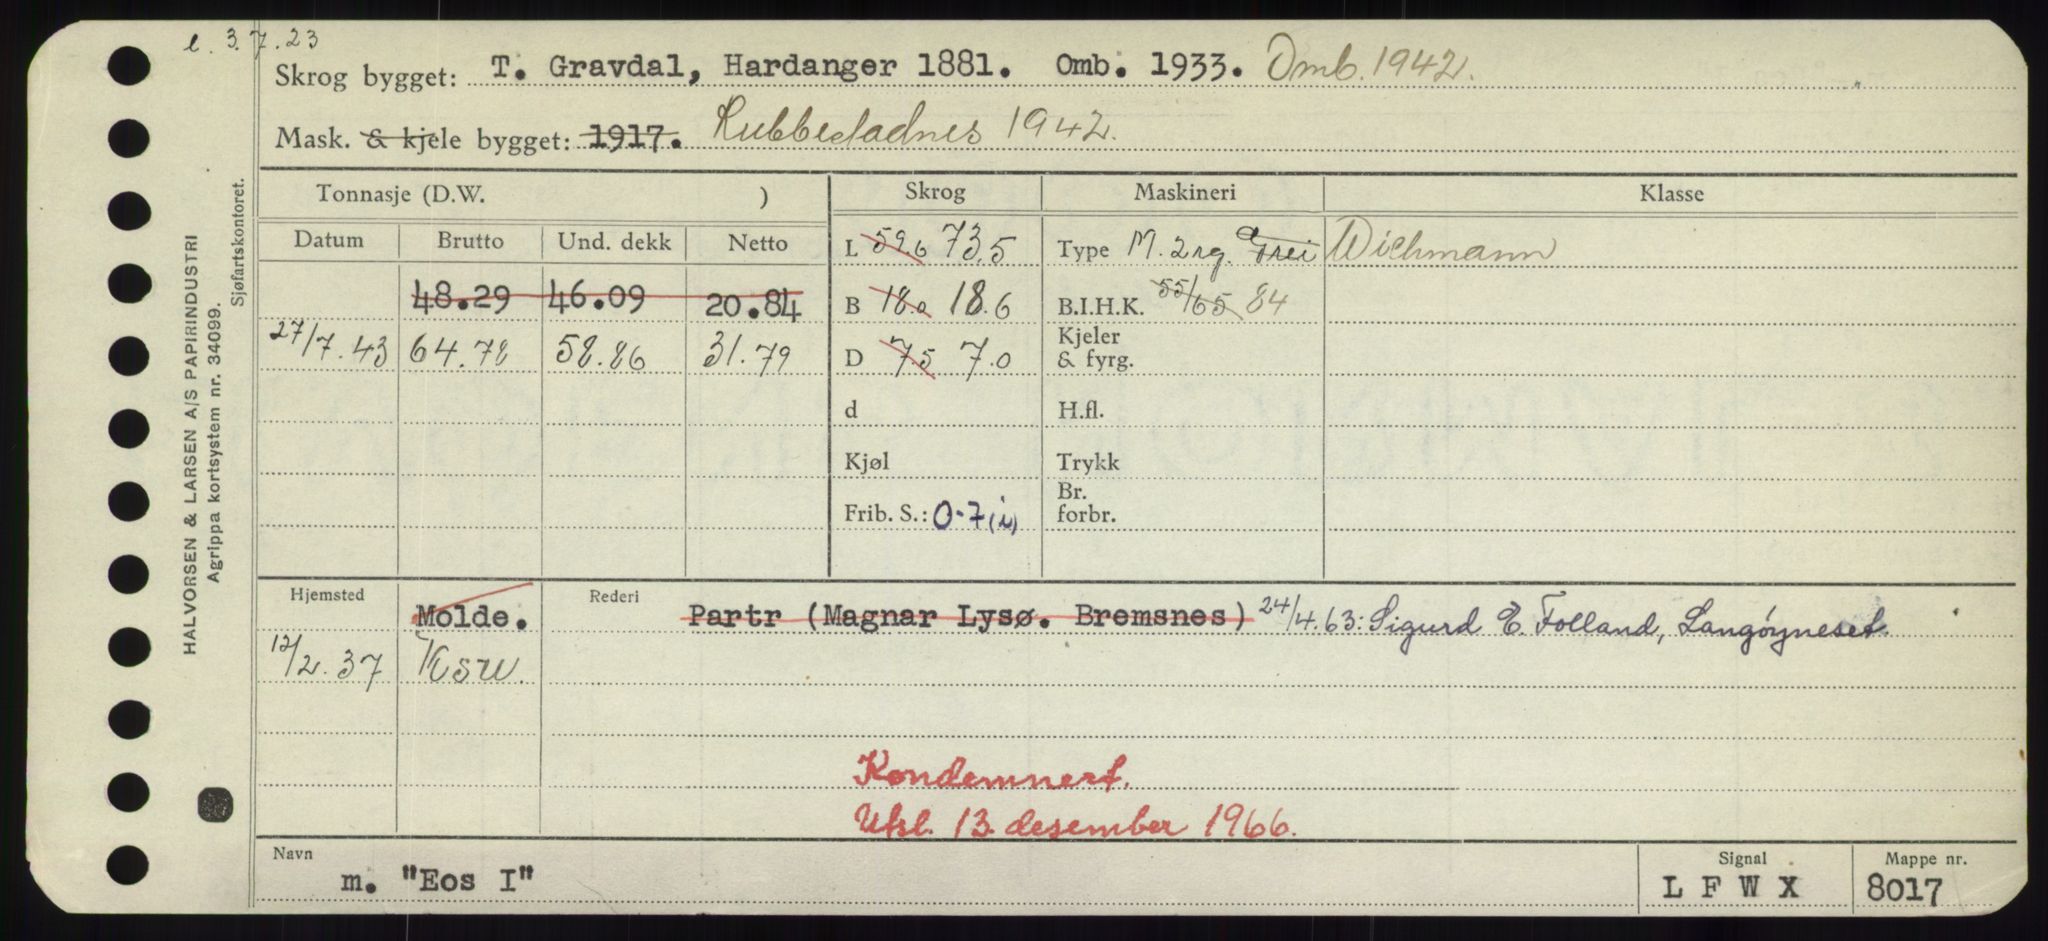 e. 3.7.23
Skrog bygget: T. Gravdal, Hardanger 1881. Omb. 1933. Omb. 1942.
Mask. & kjele bygget: 1917. Rubbestadnes 1942.
Tonnasje (D.W. ) Skrog Maskineri Klasse
Datum Brutto Und. dekk Netto L 59.6 73.5 Type M. 2 rg. Frei Wichmann
48.29 46.09 20.84 B 18.0 18.6 B.I.H.K. 55/65 84
27/7.43 64.78 58.86 31.79 D 7.5 7.0 Kjeler & fyrg.
d H.fl.
Kjøl Trykk
Frib. S.: 0-7(i) Br. forbr.
Hjemsted Molde. Rederi Partr (Magnar Lysø. Bremsnes) 24/4.63: Sigurd E. Folland, Langøyneset.
12/2.37 Krsu.
Kondemnert.
Utsl. 13. desember 1966.
Navn Signal Mappe nr.
m. "Eos I" L F W X 8017
HALVORSEN & LARSEN A/S PAPIRINDUSTRI
Agrippa kortsystem nr. 34099.
Sjøfartskontoret.